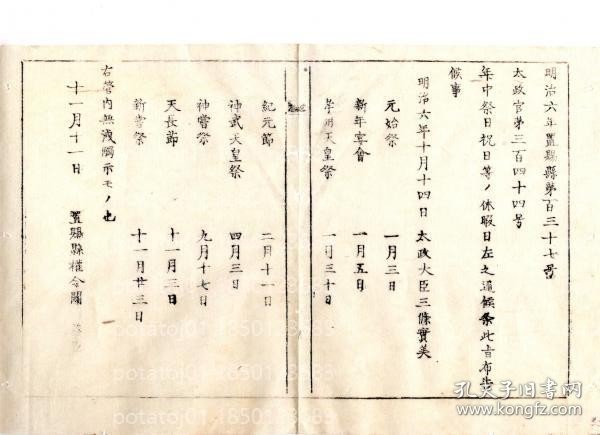 明治六年置賜縣第百三十七号
太政官第三百四十四号
年中祭日祝日等ノ休暇日左之通候条此旨布告
候事
明治六年十月十四日 太政大臣三條實美
元始祭 一月三日
新年宴會 一月五日
孝明天皇祭 一月三十日
紀元節 二月十一日
神武天皇祭 四月三日
神嘗祭 九月十七日
天長節 十一月三日
新嘗祭 十一月廿三日
右管内無洩觸示モノ也
十一月十一日 置賜縣權令關
potatoj01 18501188683
孔夫子旧书网
www.kongfz.com